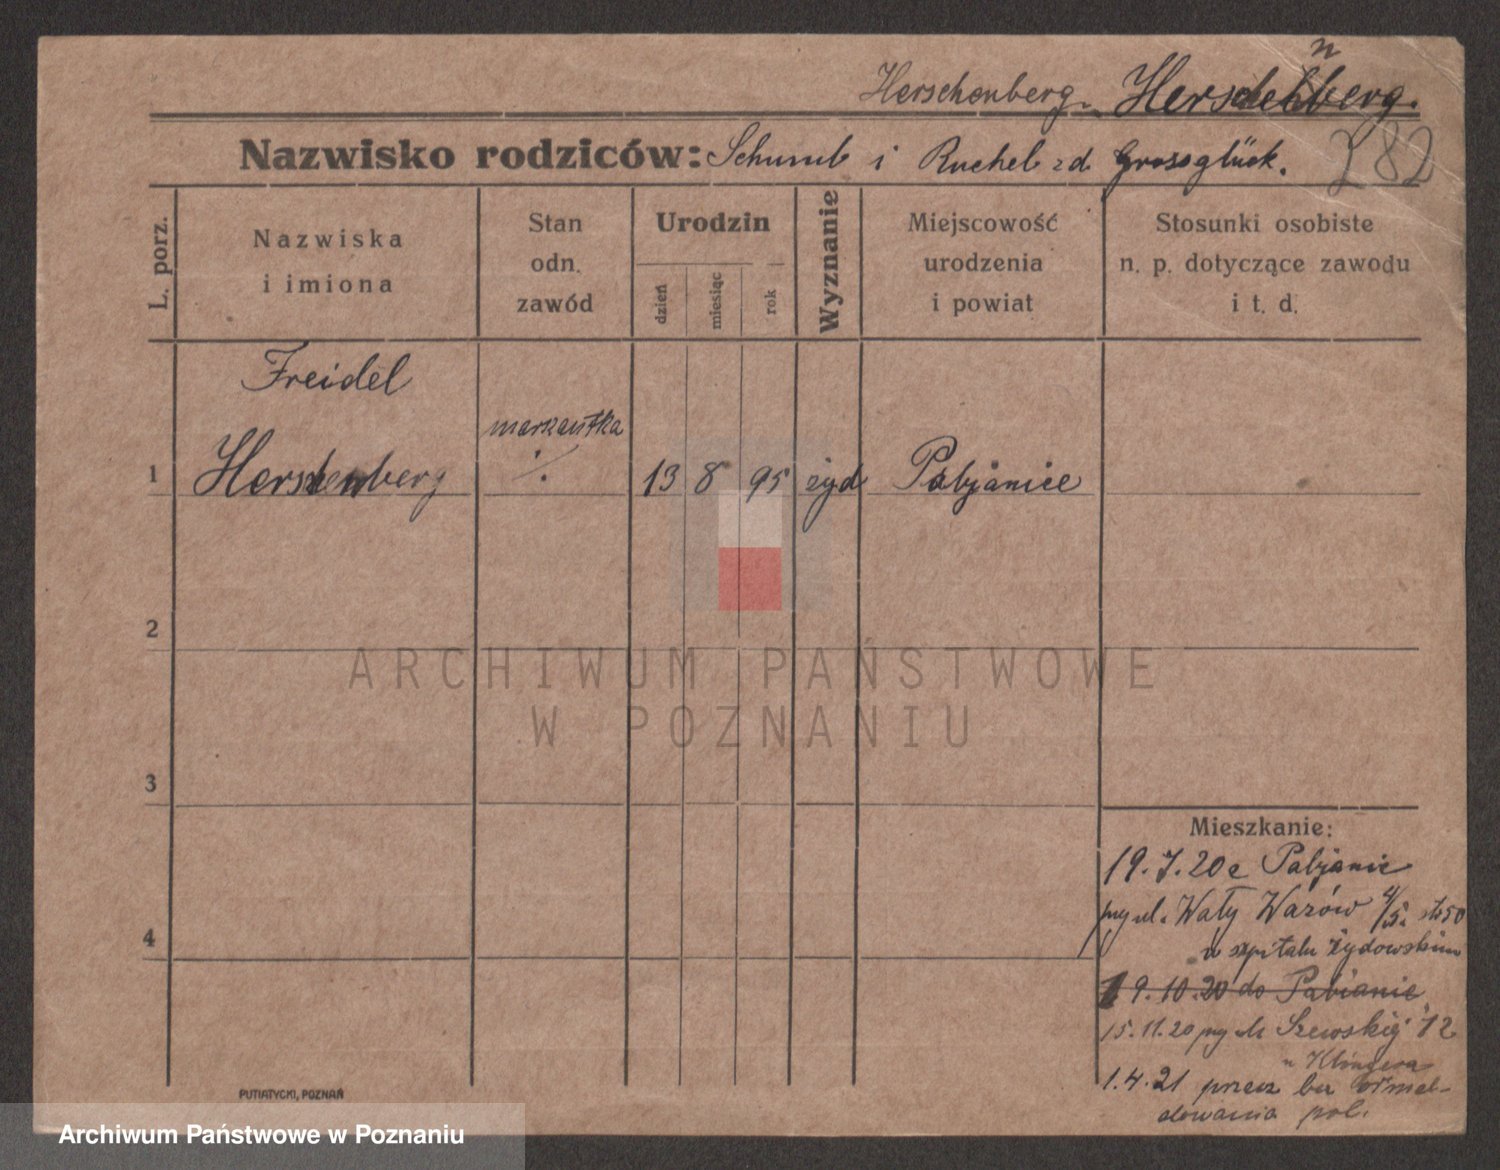 n
Herschenberg. Herschenberg.
Nazwisko rodziców: Schumb i Ruchel zd. Grossglück.
282
L. porz.
Nazwiska
i imiona
Stan
odn.
zawód
Urodzin
dzień
miesiąc
rok
Wyznanie
Miejscowość
urodzenia
i powiat
Stosunki osobiste
n. p. dotyczące zawodu
i t. d.
Freidel
1 Herschenberg ./. 13 8 95 żyd Pabjanice
2
3
4
Mieszkanie:
19.7.20 z Pabjanic
przy ul. Wały Wazów 4/5.
w szpitalu żydowskim
19.10.20 do Pabianic
15.11.20 przy ul. Szewskiej 12
u Klingera
1.4.21 przez
dowania pol.
PUTIATYCKI, POZNAŃ
ARCHIWUM PAŃSTWOWE
W POZNANIU
Archiwum Państwowe w Poznaniu